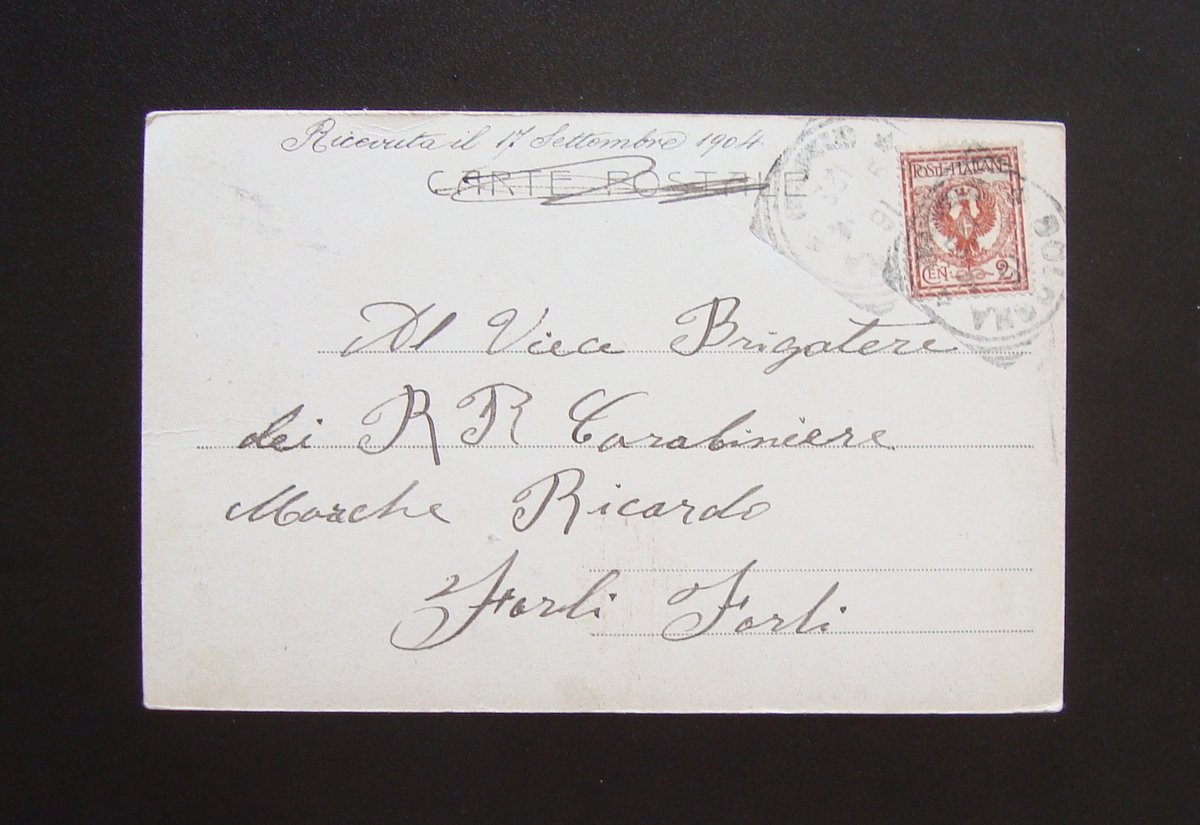 Ricevuta il 17 Settembre 1904
CARTE POSTALE
POSTE ITALIANE
CEN. 2
BOLOGNA
Al Viece Brigatere
dei RR Carabiniere
Marche Ricardo
Forli Forli